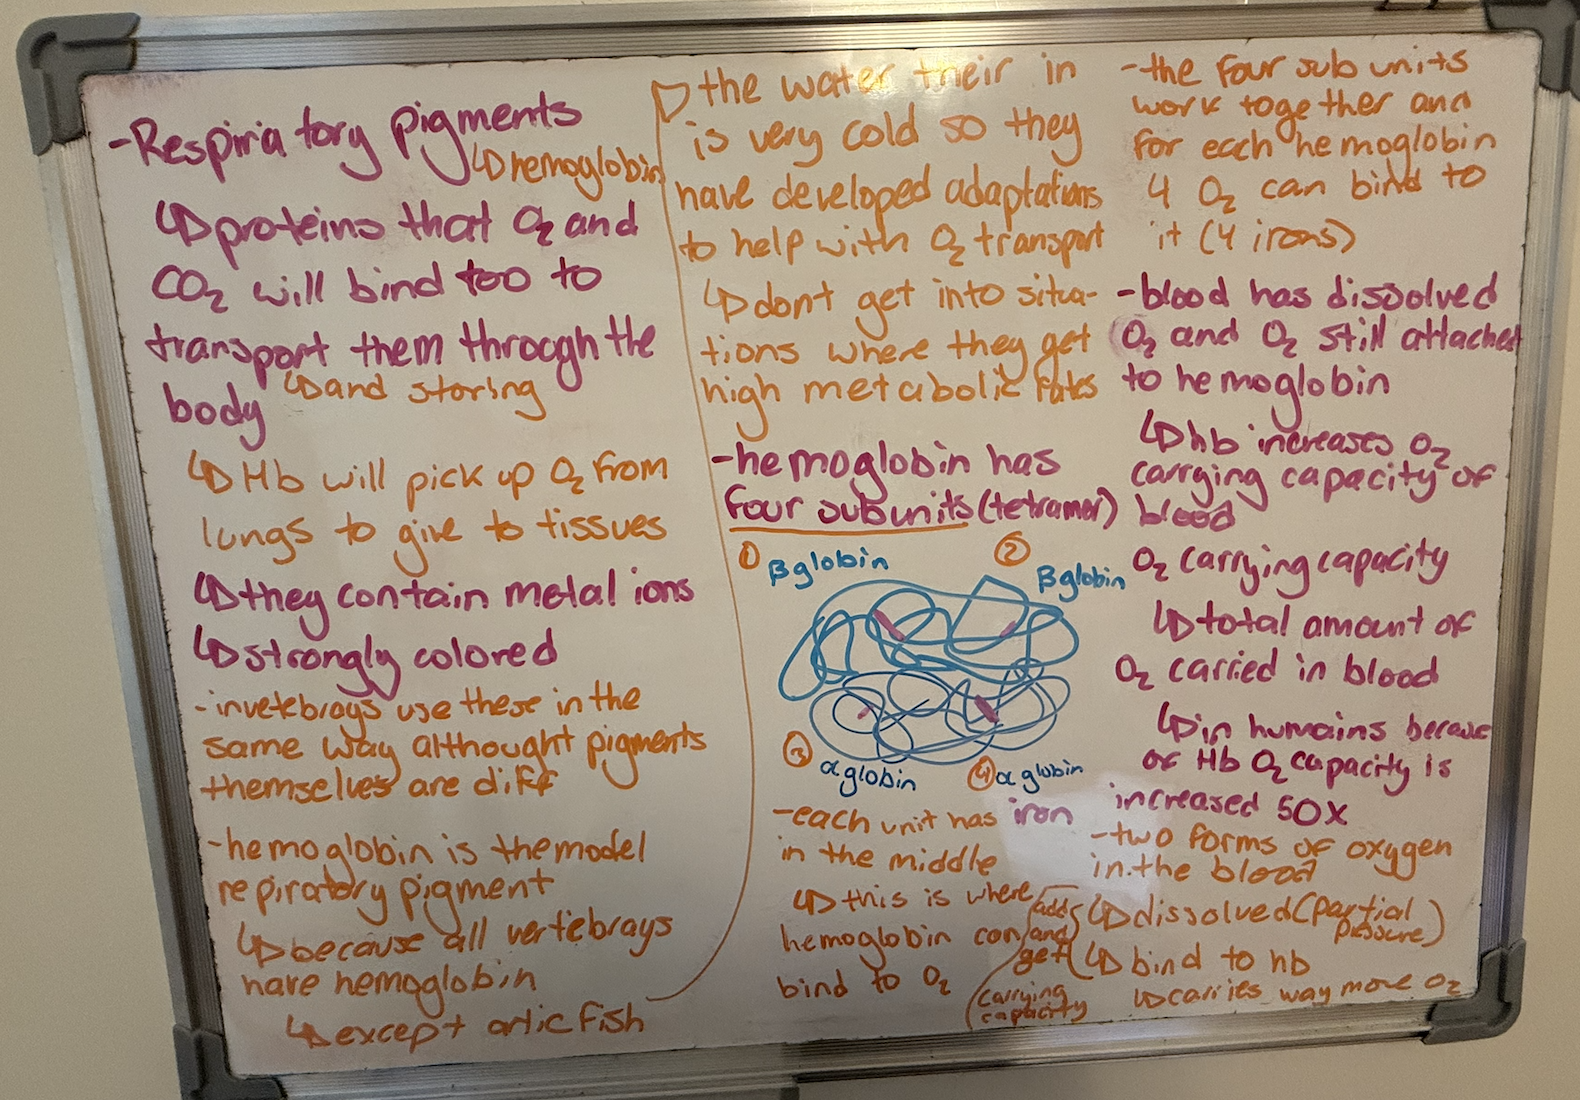 -Respiriatory pigments
↳hemoglobin
↳proteins that O₂ and
CO₂ will bind too to
transport them through the
body ↳and storing
↳Hb will pick up O₂ from
lungs to give to tissues
↳they contain metal ions
↳strongly colored
-invetebrays use these in the
same way althought pigments
themselves are diff
-hemoglobin is the model
repiratory pigment
↳because all vertebrays
have hemoglobin
↳except artic fish
↳the water their in
is very cold so they
have developed adaptations
to help with O₂ transport
↳dont get into situa-
tions where they get
high metabolic rates
-hemoglobin has
four subunits (tetramer)
① β globin
② β globin
③ α globin
④ α globin
-each unit has iron
in the middle
↳this is where
hemoglobin can
bind to O₂
-the four sub units
work together and
for each hemoglobin
4 O₂ can bind to
it (4 irons)
-blood has dissolved
O₂ and O₂ still attached
to hemoglobin
↳hb increases O₂
carrying capacity of
blood
O₂ carrying capacity
↳total amount of
O₂ carried in blood
↳in humains because
of Hb O₂ capacity is
increased 50x
-two forms of oxygen
in the blood
↳dissolved (partial
pressure)
↳bind to hb
↳carries way more O₂
add
and
get
carrying
capacity